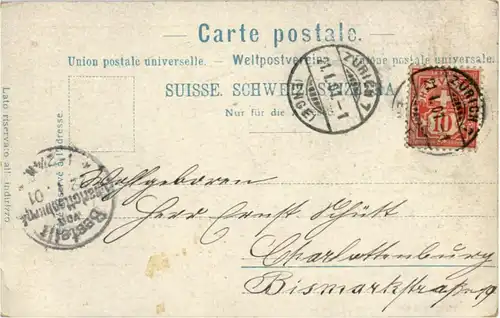 Carte postale.
Union postale universelle. Weltpostverein. Unione postale universale.
SUISSE. SCHWEIZ. SVIZZERA.
Nur für die
Lato riservato all' indirizzo
réservé à l'adresse.
ZÜRICH 7
(ENGE)
ZÜRICH
10
Bestellt
vom
Postamte
Charlottenburg
01
Wohlgeboren
Herrn Ernst Schütt
Charlottenburg
Bismarkstraße 9